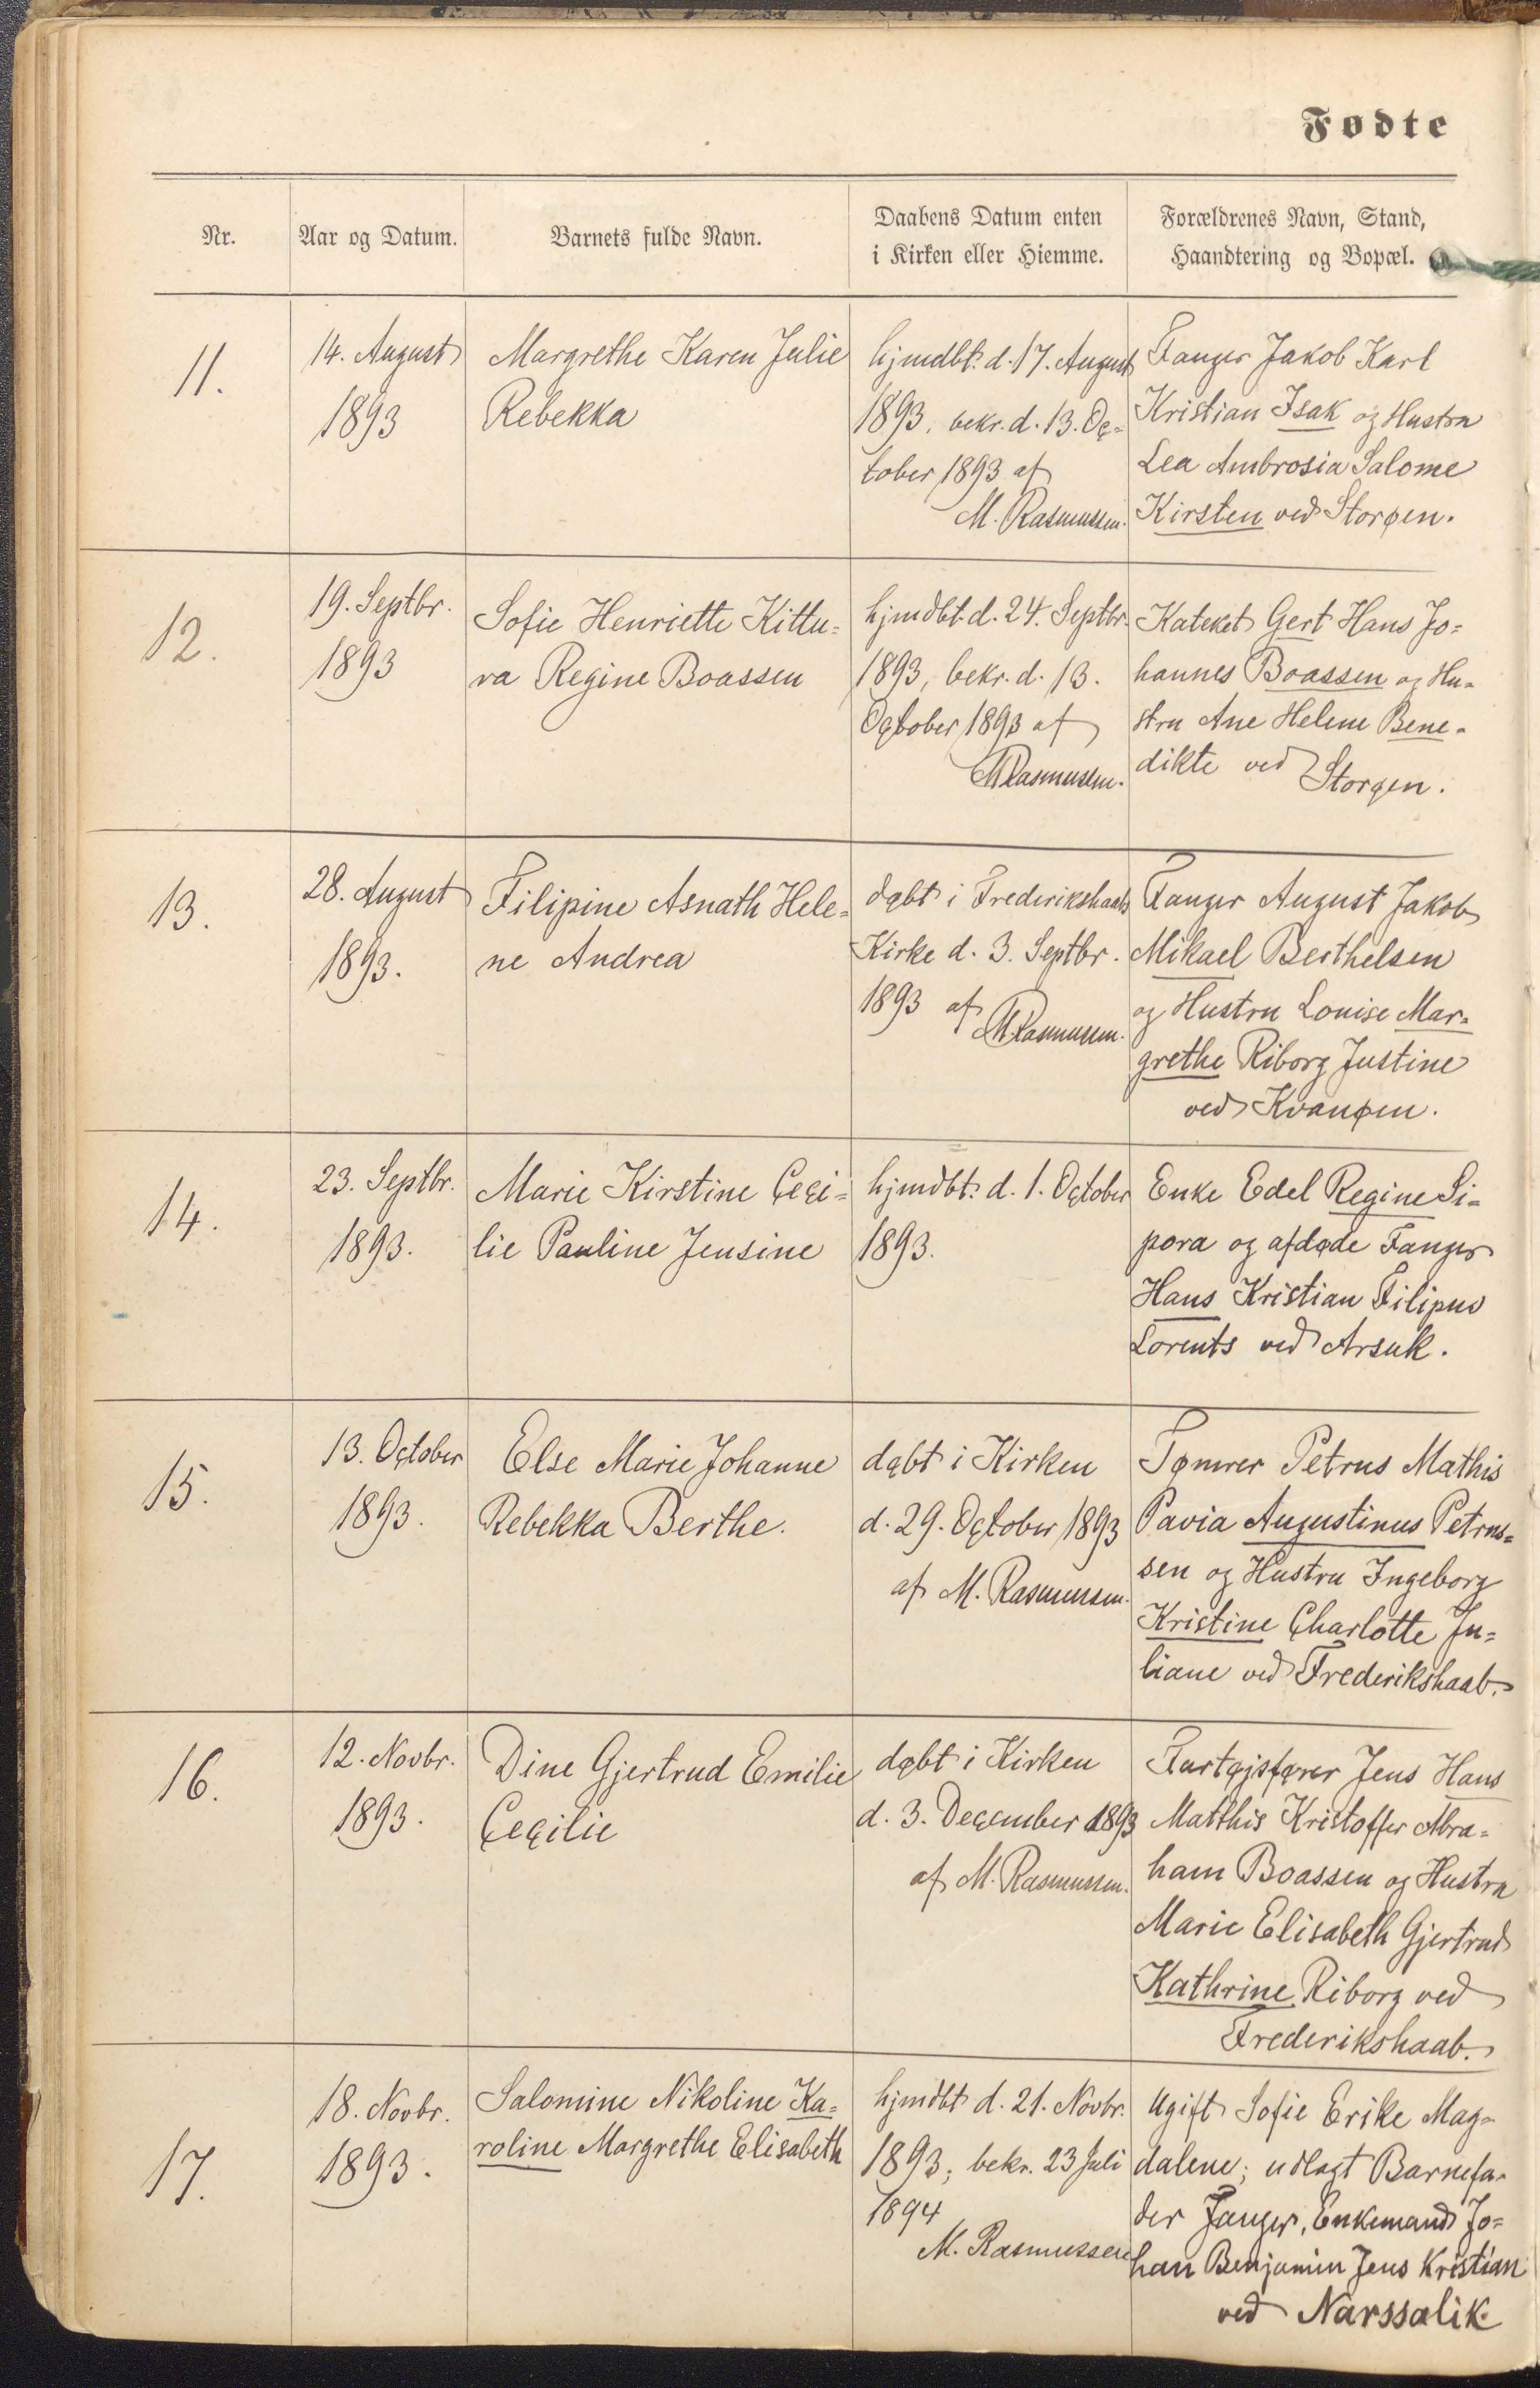 Fødte
Nr.
Aar og Datum.
Barnets fulde Navn.
Daabens Datum enten
i Kirken eller Hiemme.
Forældrenes Navn, Stand,
Haandtering og Bopæl.
11.
14. August
1893
Margrethe Karen Julie
Rebekka
hjmdbt. d. 17. August
1893, bekr. d. 13. Oc=
tober 1893 af
M. Rasmussen.
Fanger Jakob Karl
Kristian Isak og Hustru
Lea Ambrosia Salome
Kirsten ved Storøen.
12.
19. Septbr.
1893
Sofie Henriette Kittu=
ra Regine Boassen
hjmdbt. d. 24. Septbr.
1893, bekr. d. 13.
October 1893 af
MRasmussen.
Kateket Gert Hans Jo=
hannes Boassen og Hu=
stru Ane Helene Bene=
dikte ved Storøen.
13.
28. August
1893.
Filipine Asnath Hele=
ne Andrea
døbt i Frederikshaabs
Kirke d. 3. Septbr.
1893 af
MRasmussen.
Fanger August Jakob
Mikael Berthelsen
og Hustru Louise Mar=
grethe Riborg Justine
ved Kvanøen.
14.
23. Septbr.
1893.
Marie Kirstine Ceci=
lie Pauline Jensine
hjmdbt. d. 1. October
1893.
Enke Edel Regine Si=
pora og afdøde Fanger
Hans Kristian Filipus
Lorents ved Arsuk.
15.
13. October
1893.
Else Marie Johanne
Rebekka Berthe.
døbt i Kirken
d. 29. October 1893
af M. Rasmussen.
Tømrer Petrus Mathis
Pavia Augustinus Petrus=
sen og Hustru Ingeborg
Kristine Charlotte Ju=
liane ved Frederikshaab.
16.
12. Novbr.
1893.
Dine Gjertrud Emilie
Cecilie
døbt i Kirken
d. 3. December 1893
af M. Rasmussen.
Fartøjsfører Jens Hans
Matthis Kristoffer Abra=
ham Boassen og Hustru
Marie Elisabeth Gjertrud
Kathrine Riborg ved
Frederikshaab.
17.
18. Novbr.
1893.
Salomine Nikoline Ka=
roline Margrethe Elisabeth
hjmdbt d. 21. Novbr.
1893; bekr. 23 Juli
1894
M. Rasmussen
Ugift Sofie Erike Mag=
dalene; udlagt Barnefa=
der Fanger, Enkemand Jo=
han Benjamin Jens Kristian
ved Narssalik.